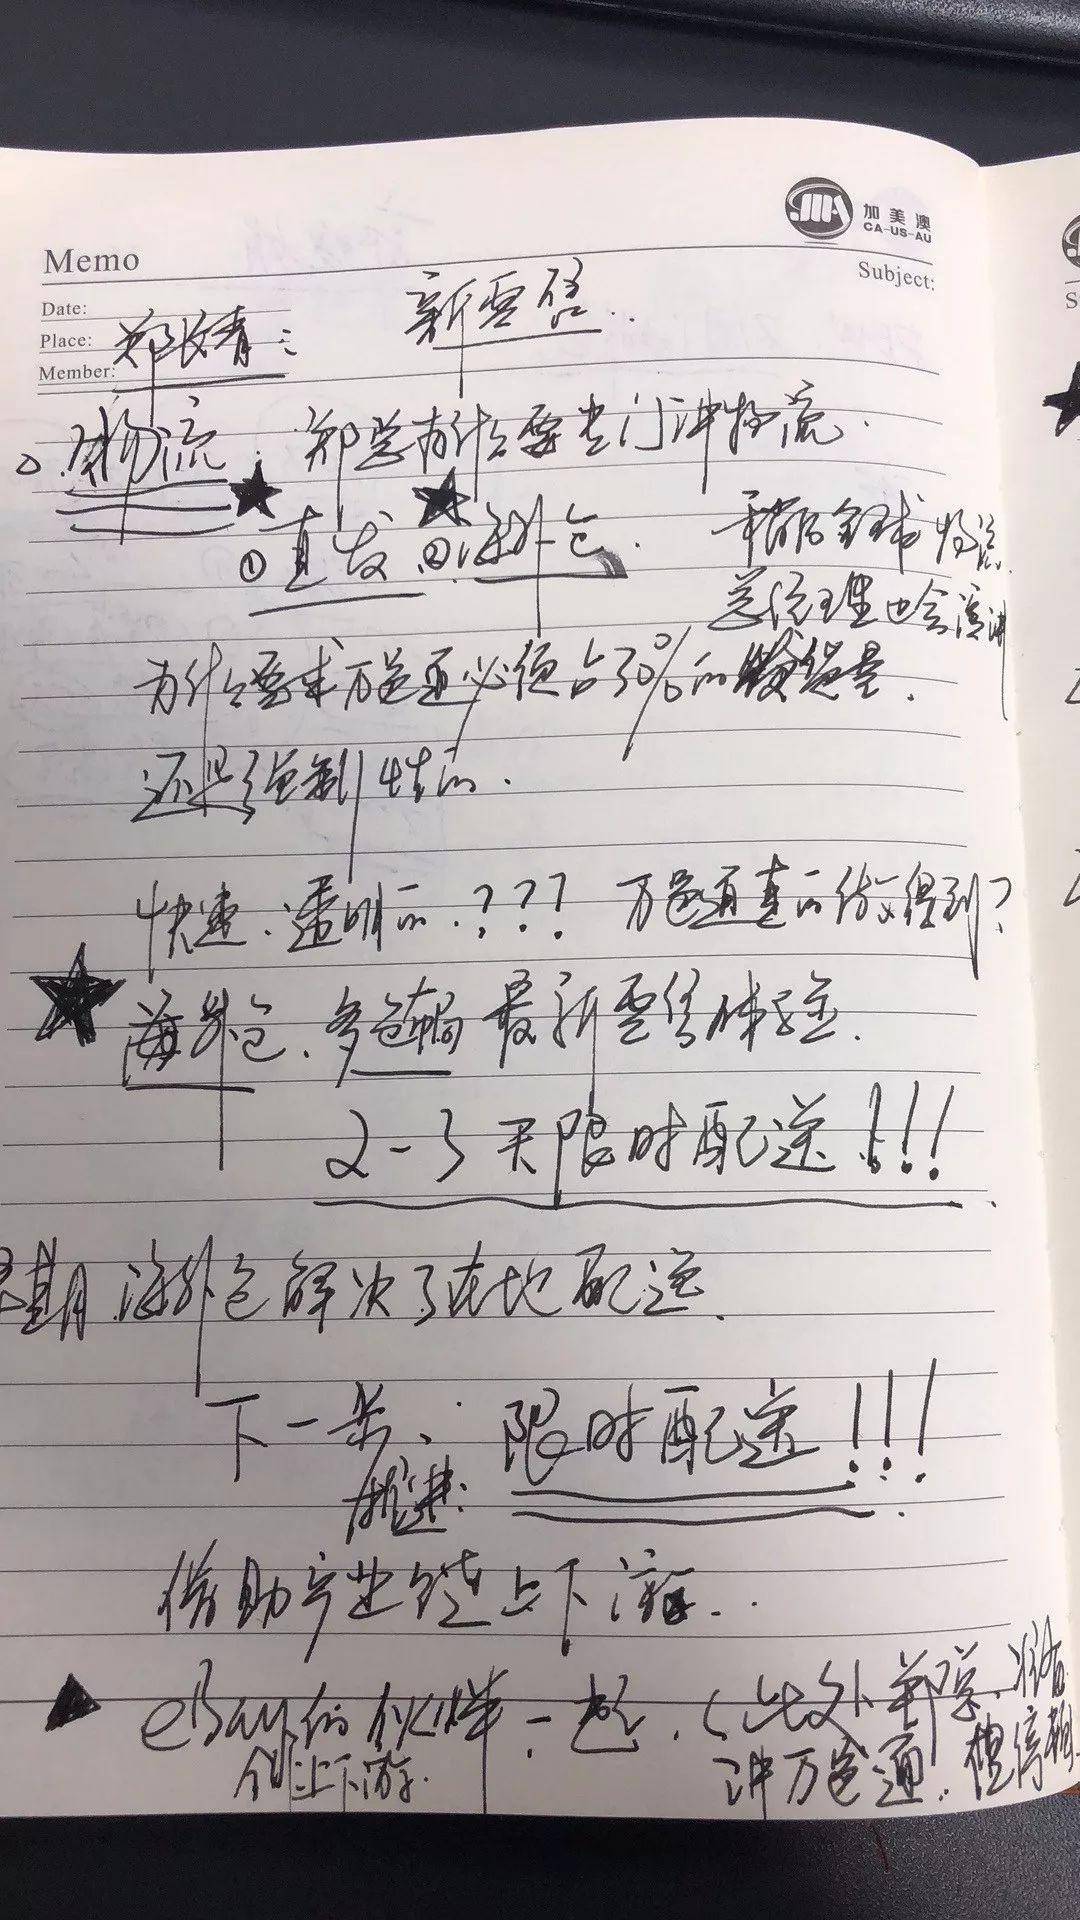 加美澳
CA-US-AU
Memo
Subject:
Date:
Place:
Member:
郑长青:
新零售..
物流. 郑总为什么要专门讲物流.
①直发 ②海外仓.
稍后全球物流
总经理也会演讲
为什么要求万邑通必须占30%的发货量.
还是强制性的.
快速、透明的.??? 万邑通真的做得到?
海外仓、多仓储 最新零售体验.
2-3天限时配送!!!
早期.海外仓解决了在地配送.
下一步、 限时配送!!!
推进:
借助产业链上下游..
eBay的伙伴.一起.(此外郑总.准备
讲万邑通.